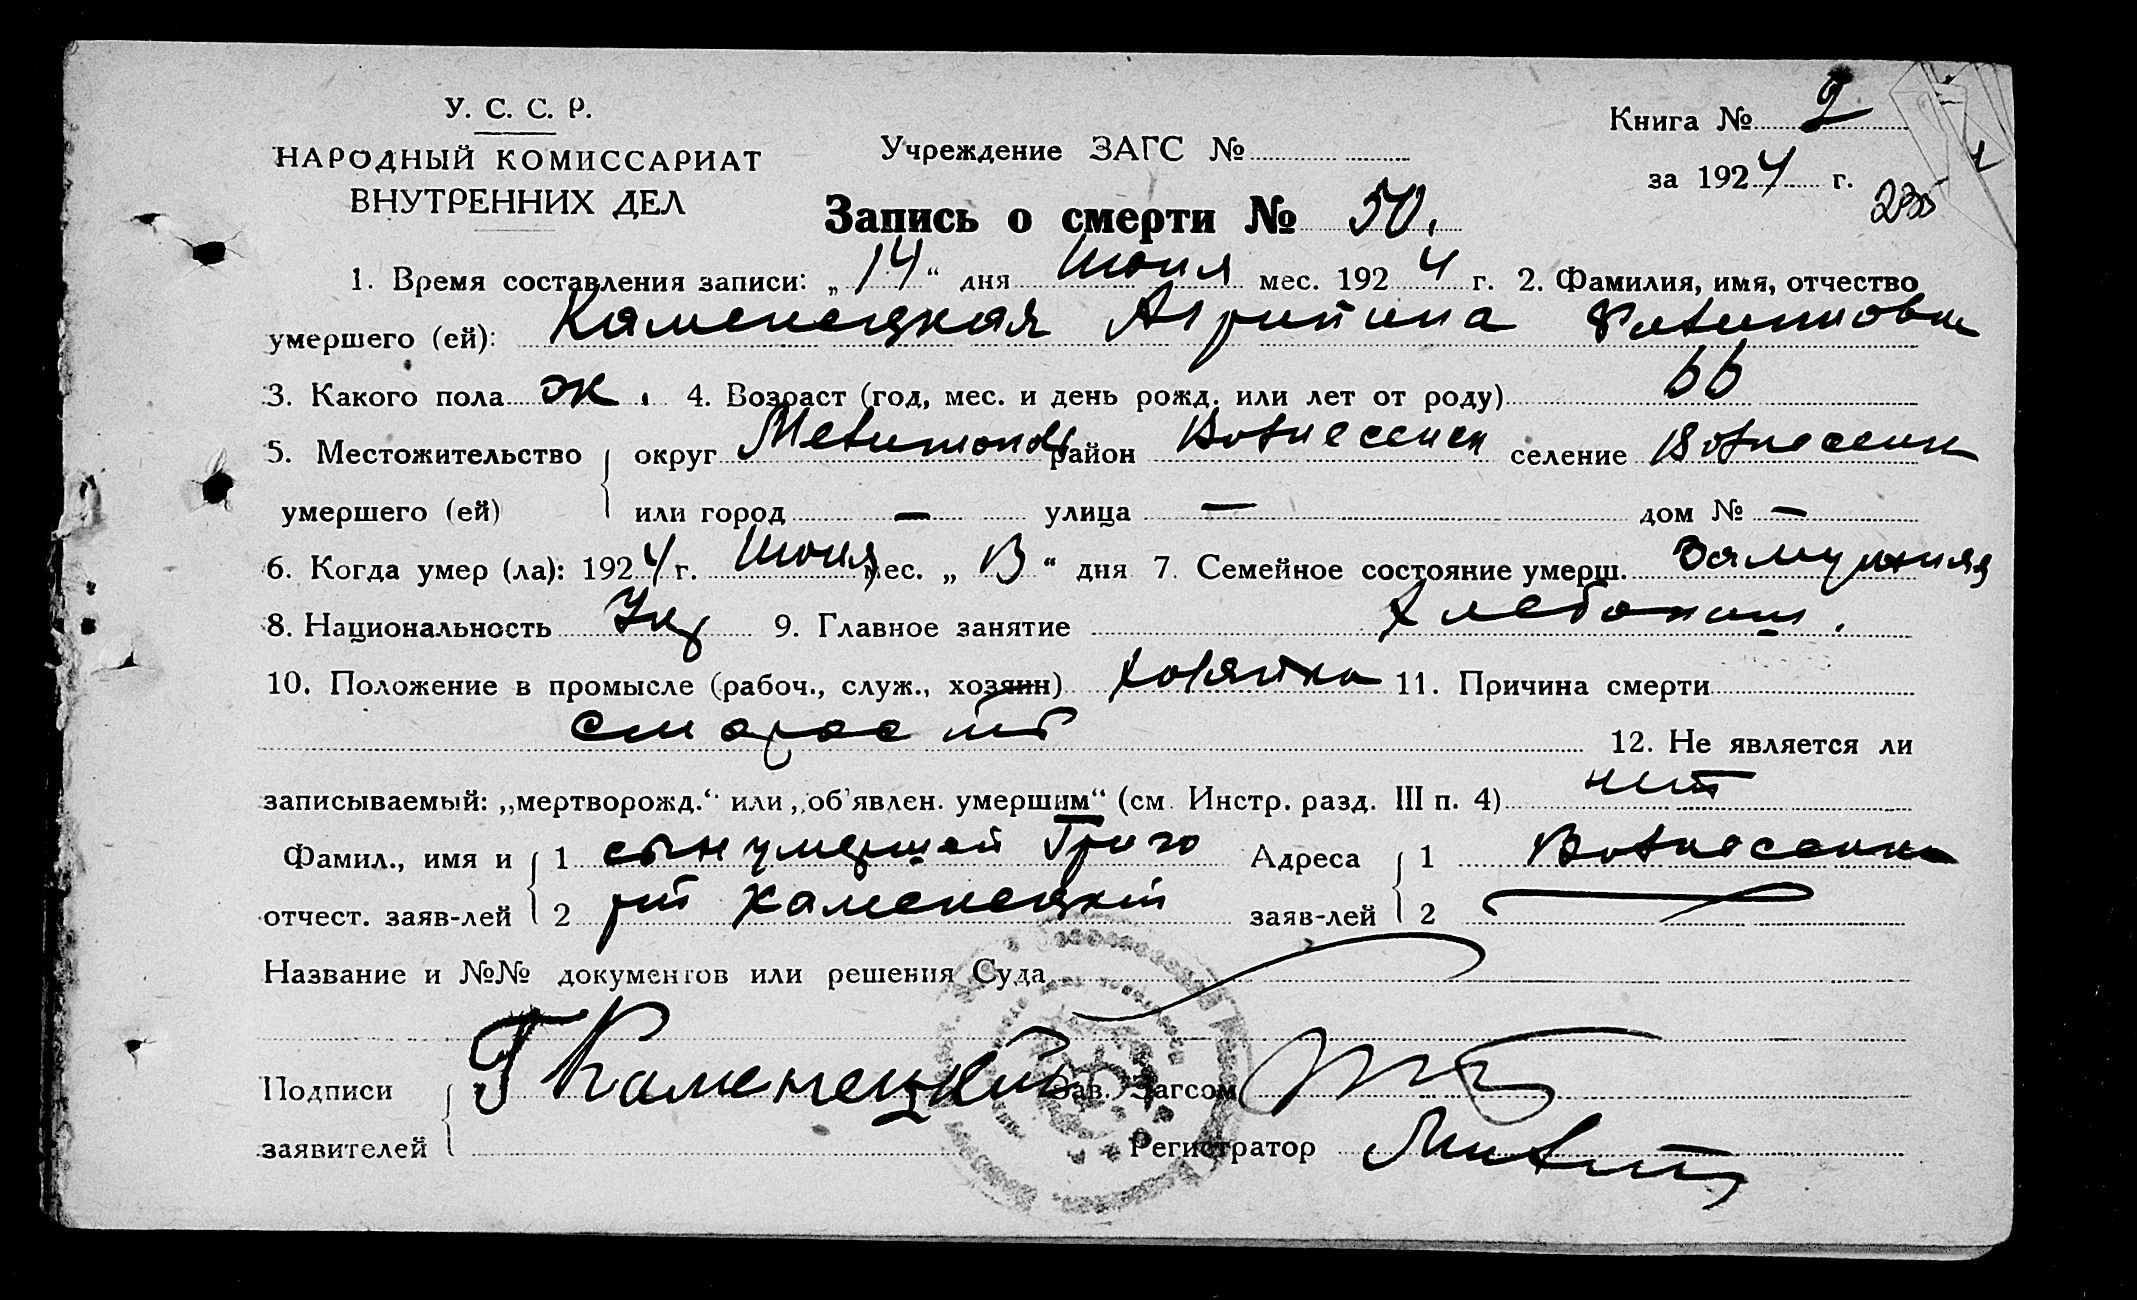 У. С. С. Р.
НАРОДНЫЙ КОМИССАРИАТ
ВНУТРЕННИХ ДЕЛ
Учреждение ЗАГС №
Книга № 2
за 1924 г.
235
Запись о смерти № 50.
1. Время составления записи: „14“ дня Июня мес. 1924 г. 2. Фамилия, имя, отчество
умершего (ей): Каменецкая Агрипина
3. Какого пола ж. 4. Возраст (год, мес. и день рожд. или лет от роду) 66
5. Местожительство округ район Вознесенск селение Вознесенк
умершего (ей) или город — улица — дом № —
6. Когда умер (ла): 1924 г. Июня мес. „13“ дня 7. Семейное состояние умерш. Замужняя
8. Национальность Укр 9. Главное занятие Хлебопаш.
10. Положение в промысле (рабоч., служ., хозяин) хозяйка 11. Причина смерти
старость 12. Не является ли
записываемый: „мертворожд.“ или „об'явлен. умершим“ (см. Инстр. разд. III п. 4) нет
Фамил., имя и 1 сын умершей Григо Адреса 1 Вознесенка
отчест. заяв-лей 2 рий Каменецкий заяв-лей 2
Название и №№ документов или решения Суда
Подписи Г Каменецкий Зав. Загсом
заявителей Регистратор